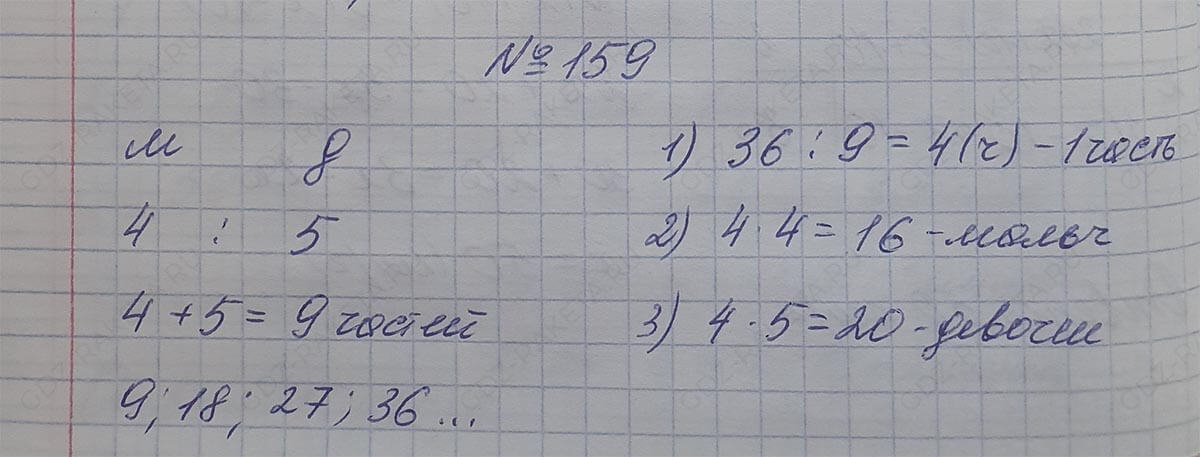 № 159
м д
4 : 5
4 + 5 = 9 частей
9; 18; 27; 36 ...
1) 36 : 9 = 4 (ч) - 1 часть
2) 4 · 4 = 16 - мальч
3) 4 · 5 = 20 - девочки